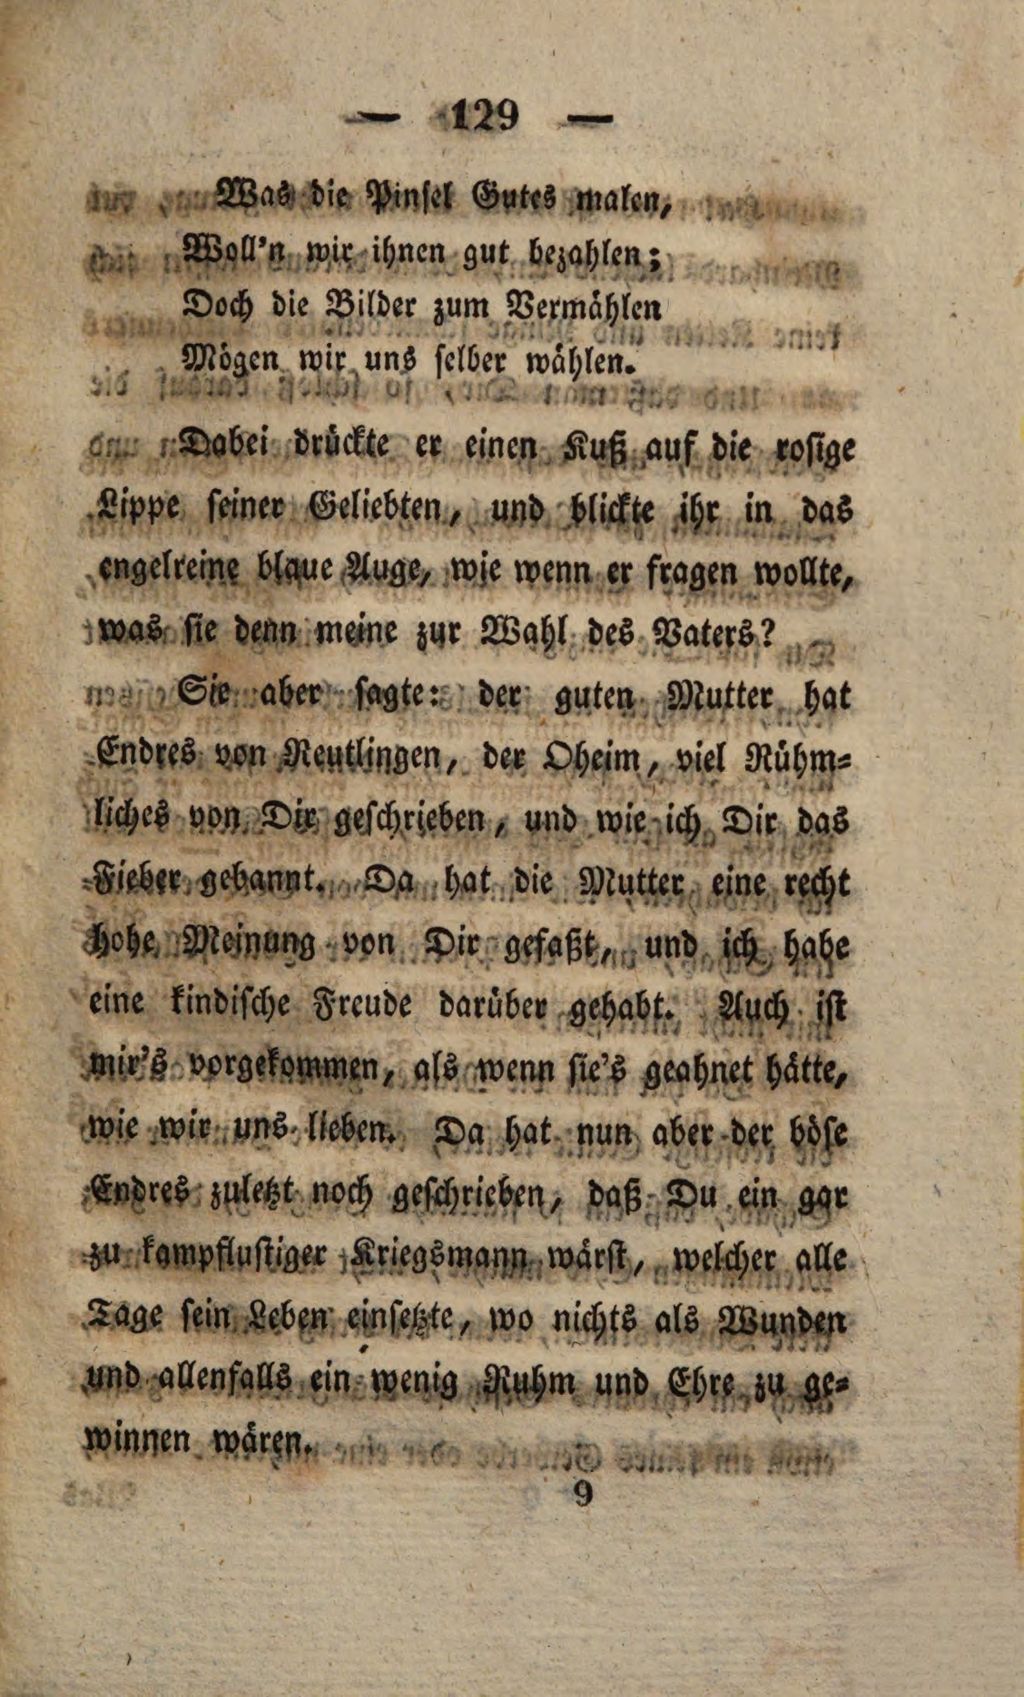 — 129 —
Was die Pinsel Gutes malen,
Woll'n wir ihnen gut bezahlen;
Doch die Bilder zum Vermählen
Mögen wir uns selber wählen.
Dabei drückte er einen Kuß auf die rosige
Lippe seiner Geliebten, und blickte ihr in das
engelreine blaue Auge, wie wenn er fragen wollte,
was sie denn meine zur Wahl des Vaters?
Sie aber sagte: der guten Mutter hat
Endres von Reutlingen, der Oheim, viel Rühm-
liches von Dir geschrieben, und wie ich Dir das
Fieber gebannt. Da hat die Mutter eine recht
hohe Meinung von Dir gefaßt, und ich habe
eine kindische Freude darüber gehabt. Auch ist
mir's vorgekommen, als wenn sie's geahnet hätte,
wie wir uns lieben. Da hat nun aber der böse
Endres zuletzt noch geschrieben, daß Du ein gar
zu kampflustiger Kriegsmann wärst, welcher alle
Tage sein Leben einsetzte, wo nichts als Wunden
und allenfalls ein wenig Ruhm und Ehre zu ge-
winnen wären.
9